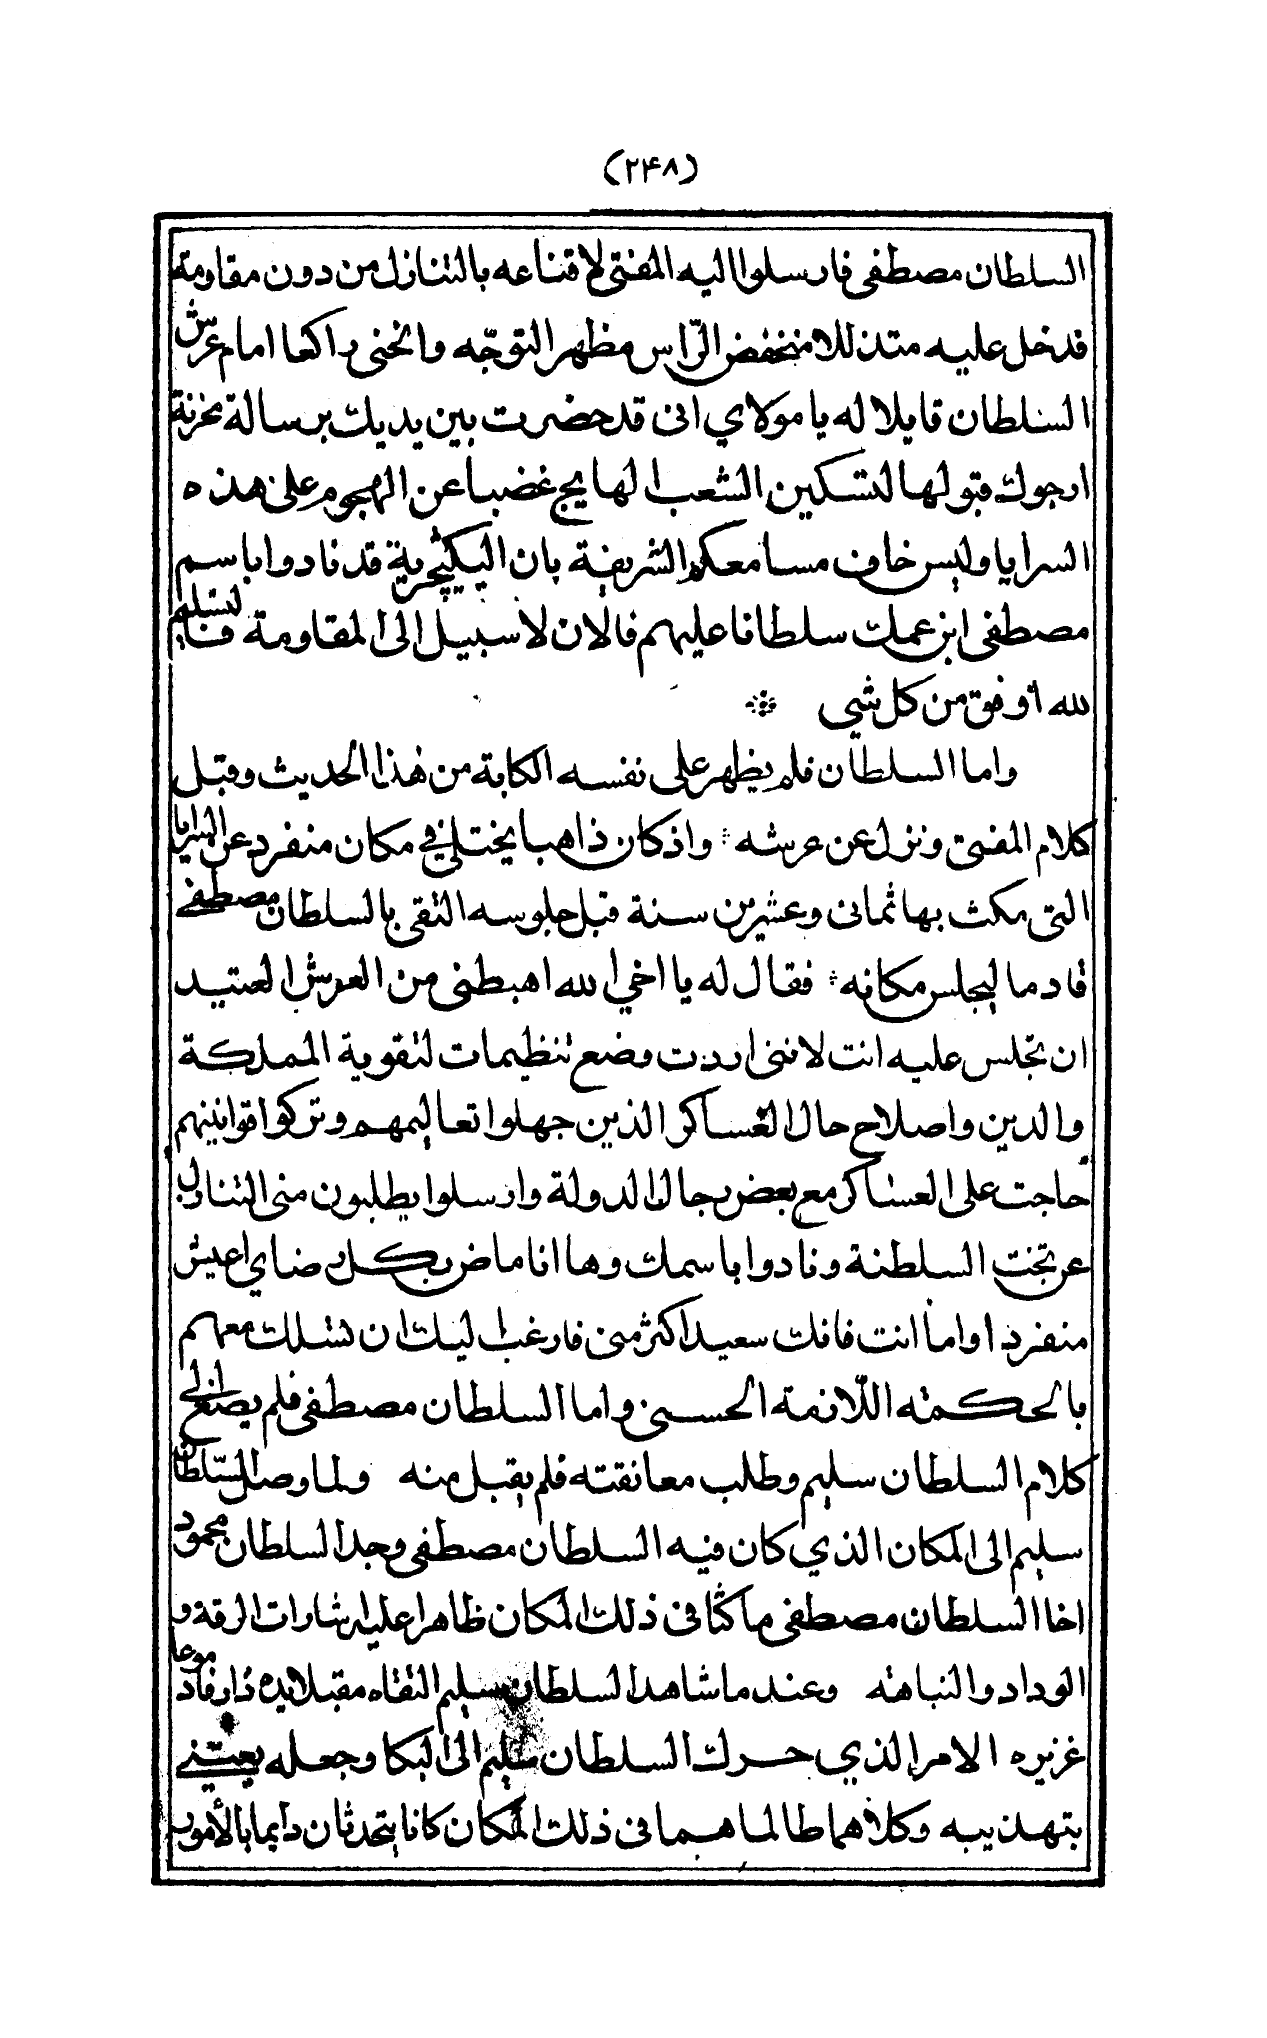 (٢٤٨)
السلطان مصطفى فارسلوا اليه المفتى لاقناعه بالتنازل من دون مقاومة
فدخل عليه متذللا منخفض الرّاس مظهر التوجّه وانحنى راكعا امام عرش
السلطان قايلا له يا مولاي انى قد حضرت بين يديك برسالة محزنة
ارجوك قبولها لتسكين الشعب الهايج غضبا عن الهجوم على هذه
السرايا وليس خاف مسامعكم الشريفة بان اليكيچرية قد نادوا باسم
مصطفى ابن عمك سلطانا عليهم فالان لا سبيل الى المقاومة فالتسليم
لله اوفق من كل شي
واما السلطان فلم يظهر على نفسه الكابة من هذا الحديث وقبل
كلام المفتى ونزل عن عرشه واذ كان ذاهبا يختلى في مكان منفرد عن السرايا
التى مكث بها ثمانى وعشرين سنة قبل جلوسه التقى بالسلطان مصطفى
قادما ليجلس مكانه فقال له يا اخي الله اهبطنى من العرش العتيد
ان تجلس عليه انت لاننى اردت وضع تنظيمات لتقوية المملكة
والدين واصلاح حال العساكر الذين جهلوا تعاليمهم وتركوا قوانينهم
حاجت على العساكر مع بعض رجال الدولة وارسلوا يطلبون منى التنازل
عن تخت السلطنة ونادوا باسمك وها انا ماض بكل رضاي اعيش
منفردا واما انت فانك سعيد اكثر منى فارغب اليك ان تسلك معهم
بالحكمته اللازمة الحسنى واما السلطان مصطفى فلم يصغ الى
كلام السلطان سليم وطلب معانقته فلم يقبل منه ولما وصل السلطان
سليم الى المكان الذي كان فيه السلطان مصطفى وجد السلطان محمود
اخا السلطان مصطفى ماكثا فى ذلك المكان ظاهرا عليه شارات الرقة و
الوداد والنباهته وعند ما شاهد السلطان سليم التقاه مقبلا يده ذارفا دموعا
غزيره الامر الذي حرك السلطان سليم الى البكا وجعله يعتنى
بتهذيبه وكلاهما طالما هما فى ذلك المكان كانا يتحدثان دايما بالأمور